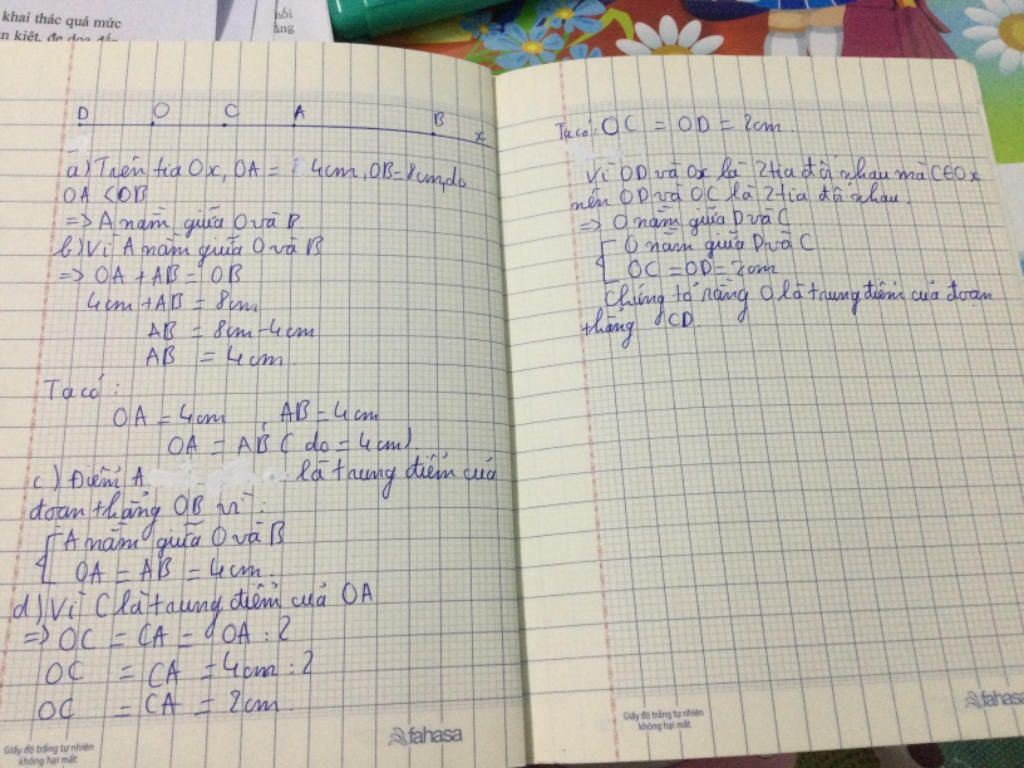 khai thác quá mức
n kiệt, đe dọa đến
D O C A B x
a) Trên tia Ox, OA = 4cm, OB = 8cm, do
OA < OB
=> A nằm giữa O và B
b) Vì A nằm giữa O và B
=> OA + AB = OB
4cm + AB = 8cm
AB = 8cm - 4cm
AB = 4cm.
Ta có:
OA = 4cm , AB = 4cm
OA = AB ( do = 4cm)
c) Điểm A là trung điểm của
đoạn thẳng OB vì:
A nằm giữa O và B
OA = AB = 4cm.
d) Vì C là trung điểm của OA
=> OC = CA = OA : 2
OC = CA = 4cm : 2
OC = CA = 2cm.
Giấy độ trắng tự nhiên
không hại mắt
fahasa
Ta có: OC = OD = 2cm.
Vì OD và Ox là 2 tia đối nhau mà C∈Ox
nên OD và OC là 2 tia đối nhau.
=> O nằm giữa D và C
O nằm giữa D và C
OC = OD = 2cm
Chứng tỏ rằng O là trung điểm của đoạn
thẳng CD.
Giấy độ trắng tự nhiên
không hại mắt
fahasa